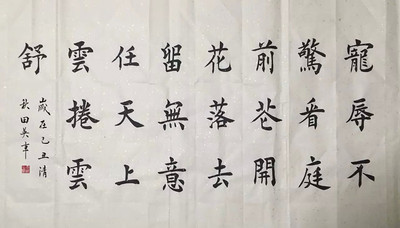 寵辱不
驚看庭
前芲開
花落去
留無意
任天上
雲捲雲
舒
歲在己丑清
秋田英章